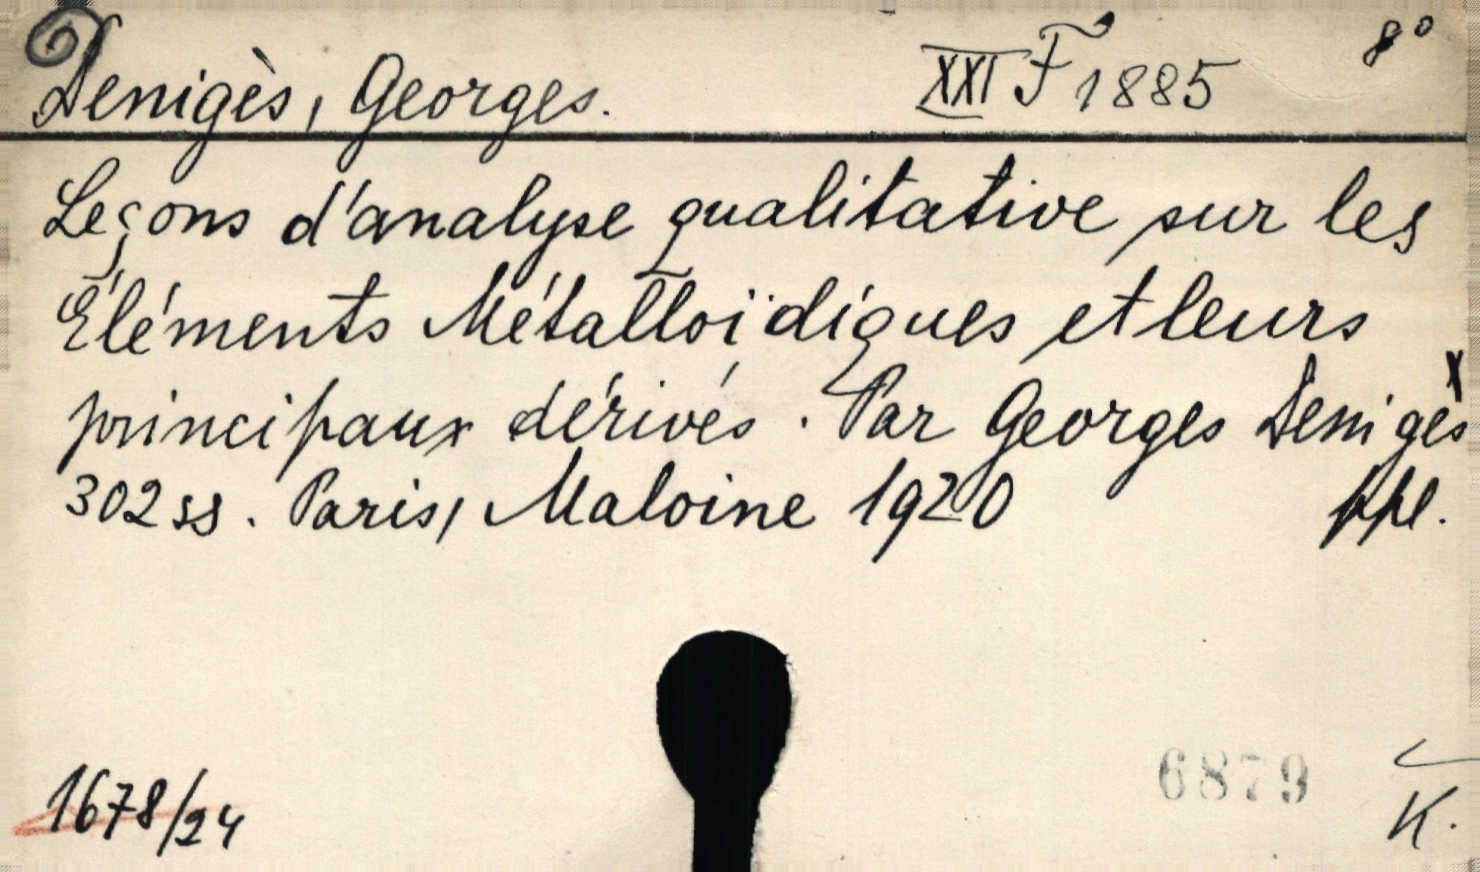 Denigès, Georges. XXI F 1885 8°
Leçons d'analyse qualitative sur les
Éléments Métalloïdiques et leurs
principaux dérivés. Par Georges Denigès x
302 ss. Paris, Maloine 1920 ppl.
6879
1678/24 K.